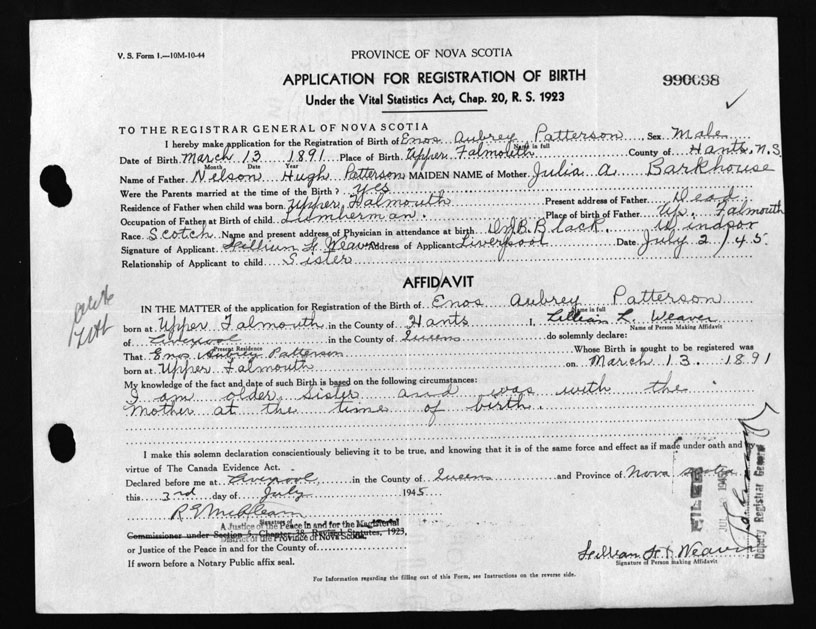 V. S. Form 1.—10M-10-44
PROVINCE OF NOVA SCOTIA
APPLICATION FOR REGISTRATION OF BIRTH
990698
Under the Vital Statistics Act, Chap. 20, R. S. 1923
TO THE REGISTRAR GENERAL OF NOVA SCOTIA
I hereby make application for the Registration of Birth of Enos Aubrey Patterson Sex Male
Name in full
Date of Birth March 13 1891 Place of Birth Upper Falmouth County of Hants N.S
Month Date Year
Name of Father Nelson Hugh Patterson MAIDEN NAME of Mother Julia A. Barkhouse
Were the Parents married at the time of the Birth? yes
Residence of Father when child was born Upper Falmouth Present address of Father Dead
Occupation of Father at Birth of child Lumberman. Place of birth of Father Up. Falmouth
Race Scotch Name and present address of Physician in attendance at birth Black. Windsor
Signature of Applicant Lillian Weaver Address of Applicant Liverpool Date July 2/45
Relationship of Applicant to child Sister
AFFIDAVIT
IN THE MATTER of the application for Registration of the Birth of Enos Aubrey Patterson
Name in full
born at Upper Falmouth in the County of Hants I, Lillian L. Weaver
Name of Person Making Affidavit
of Liverpool in the County of Queens do solemnly declare:
Present Residence
That Enos Aubrey Patterson Whose Birth is sought to be registered was
born at Upper Falmouth on March 13. 1891
My knowledge of the fact and date of such Birth is based on the following circumstances:
I am older sister and was with the
mother at the time of birth.
I make this solemn declaration conscientiously believing it to be true, and knowing that it is of the same force and effect as if made under oath and by
virtue of The Canada Evidence Act.
Declared before me at Liverpool in the County of Queens and Province of Nova Scotia
this 3rd day of July 1945
Signature of
A Justice of the Peace in and for the Magisterial
Commissioner under Section 5, Chapter 38, Revised Statutes, 1923,
District of the Province of Nova Scotia
or Justice of the Peace in and for the County of
If sworn before a Notary Public affix seal.
Lillian Weaver
Signature of Person Making Affidavit
FILED
JUL 1945
Deputy Registrar General
For Information regarding the filling out of this Form, see Instructions on the reverse side.